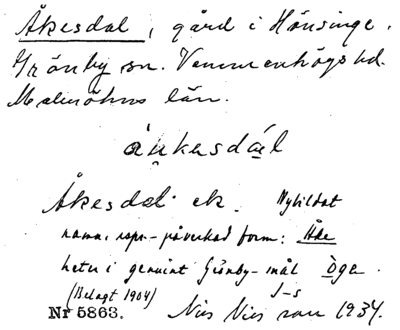 Åkesdal, gård i Hönsinge.
Grönby sn. Vemmenhögs hd.
Malmöhus län.
åkesdal
Åkesdal ek. Nybildat
namn, rspr.-påverkad form: Åke
heter i genuint Grönby-mål
(Belagt 1904)
Nr 5863. Nils Nilsson 1934.